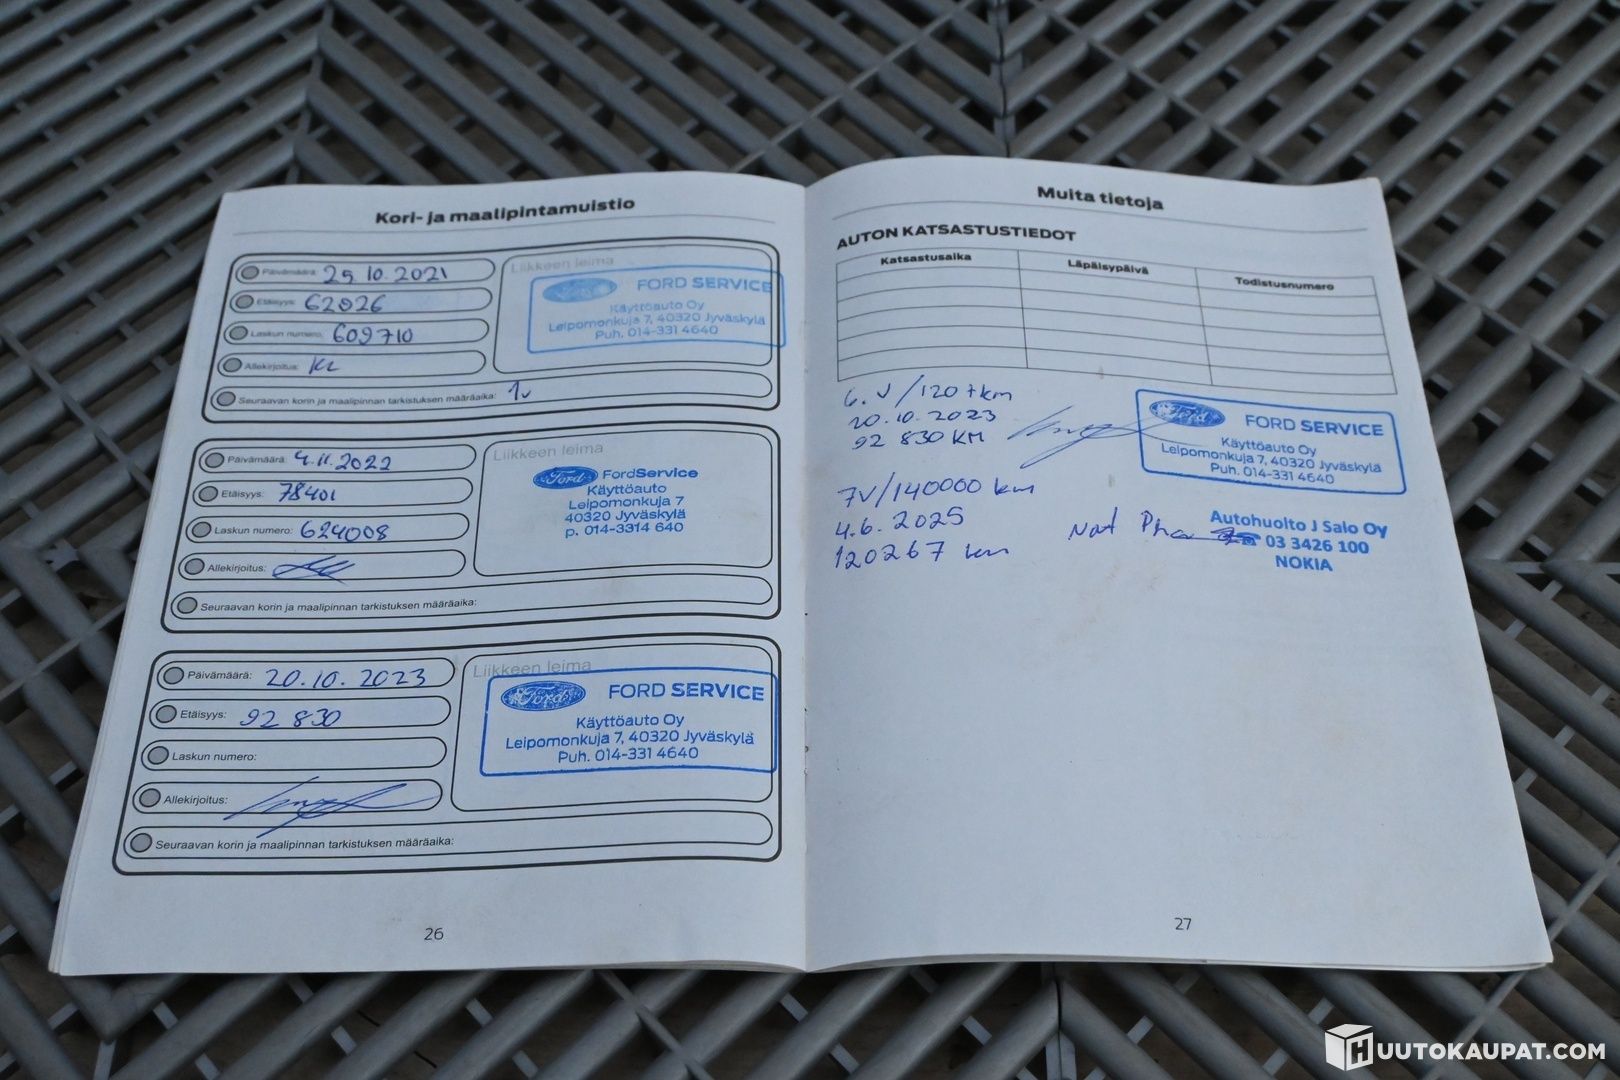 Kori- ja maalipintamuistio
Päivämäärä: 29.10.2021
Etäisyys: 62026
Laskun numero: 609710
Allekirjoitus: KL
Seuraavan korin ja maalipinnan tarkistuksen määräaika: 1v
Liikkeen leima
Ford FORD SERVICE
Käyttöauto Oy
Leipomonkuja 7, 40320 Jyväskylä
Puh. 014-331 4640
Päivämäärä: 4.11.2022
Etäisyys: 78401
Laskun numero: 624008
Allekirjoitus:
Seuraavan korin ja maalipinnan tarkistuksen määräaika:
Liikkeen leima
Ford FordService
Käyttöauto
Leipomonkuja 7
40320 Jyväskylä
p. 014-3314 640
Päivämäärä: 20.10.2023
Etäisyys: 92 830
Laskun numero:
Allekirjoitus:
Seuraavan korin ja maalipinnan tarkistuksen määräaika:
Liikkeen leima
Ford FORD SERVICE
Käyttöauto Oy
Leipomonkuja 7, 40320 Jyväskylä
Puh. 014-331 4640
26
Muita tietoja
AUTON KATSASTUSTIEDOT
Katsastusaika Läpäisypäivä Todistusnumero
6. V /120 tkm
20.10.2023
92 830 KM
Ford FORD SERVICE
Käyttöauto Oy
Leipomonkuja 7, 40320 Jyväskylä
Puh. 014-331 4640
7V/140000 km
4.6. 2025
120267 km
Autohuolto J Salo Oy
☎ 03 3426 100
NOKIA
27
HUUTOKAUPAT.COM